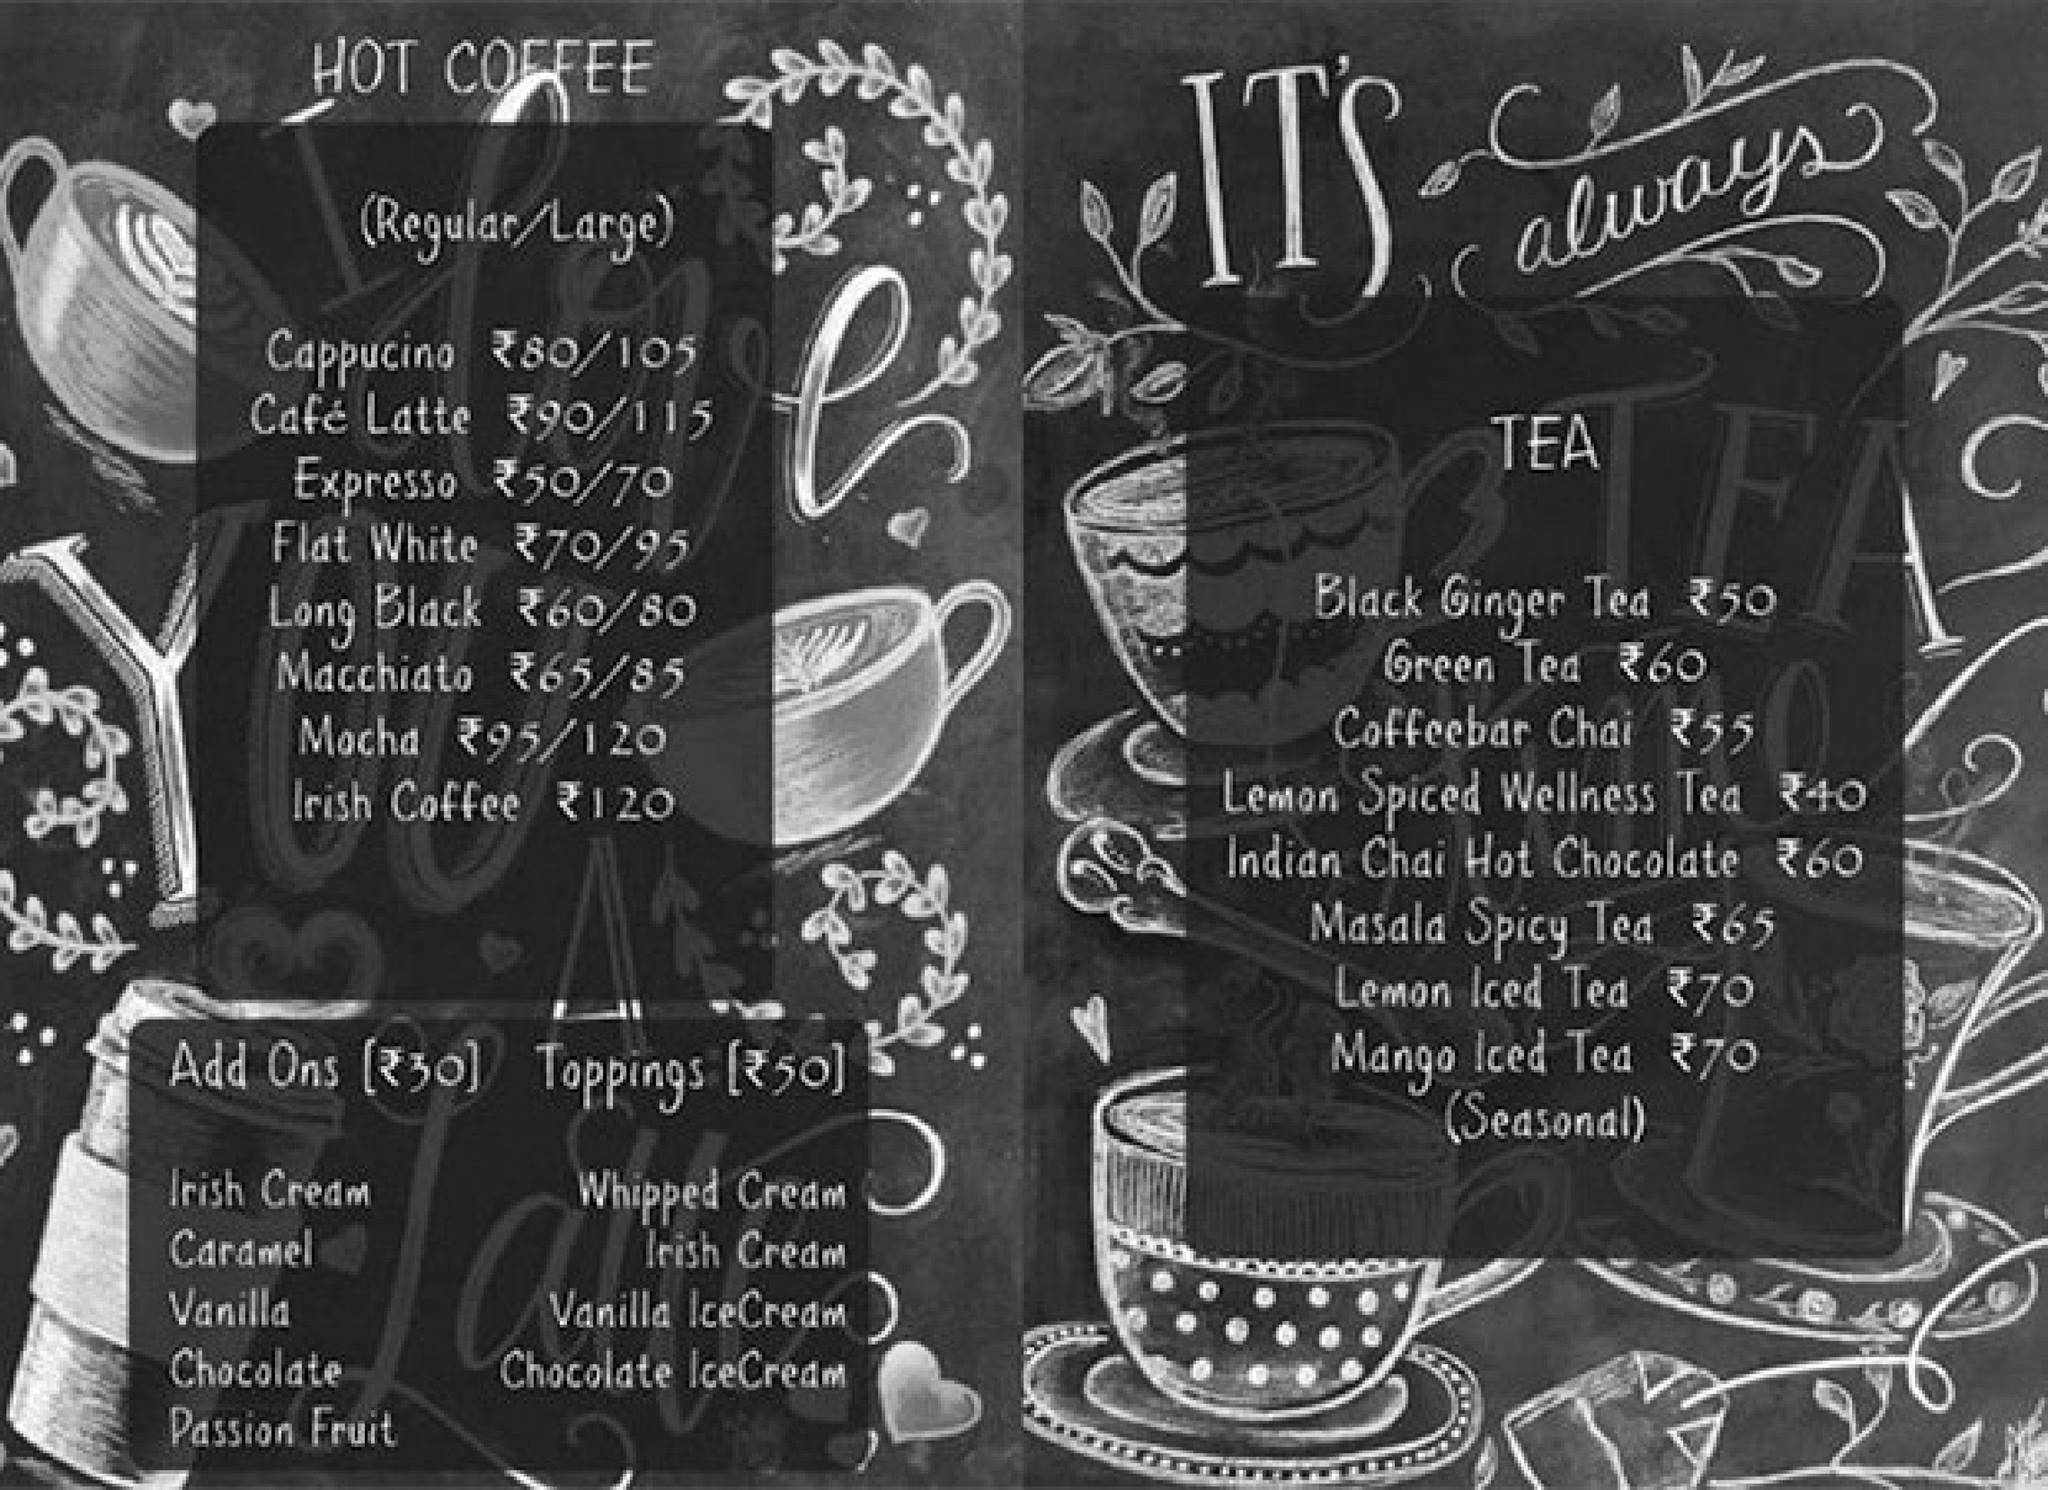 HOT COFFEE
(Regular/Large)
Cappucino ₹80/105
Café Latte ₹90/115
Expresso ₹50/70
Flat White ₹70/95
Long Black ₹60/80
Macchiato ₹65/85
Mocha ₹95/120
Irish Coffee ₹120
Add Ons [₹30]
Irish Cream
Caramel
Vanilla
Chocolate
Passion Fruit
Toppings [₹50]
Whipped Cream
Irish Cream
Vanilla IceCream
Chocolate IceCream
IT'S
always
TEA
TEA
Black Ginger Tea ₹50
Green Tea ₹60
Coffeebar Chai ₹55
Lemon Spiced Wellness Tea ₹40
Indian Chai Hot Chocolate ₹60
Masala Spicy Tea ₹65
Lemon Iced Tea ₹70
Mango Iced Tea ₹70
(Seasonal)